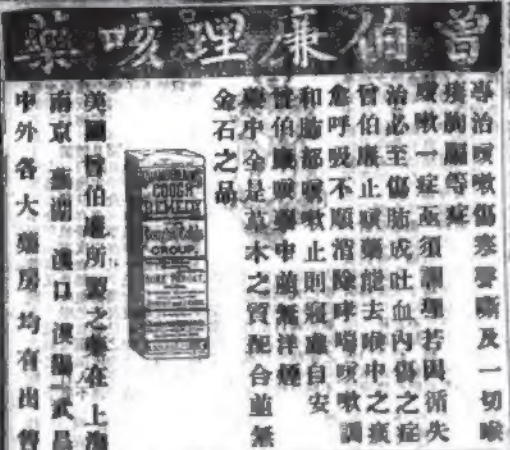 曾伯廉理咳藥
專治咳嗽傷寒聲嘶及一切喉
痰胸膈等症
咳嗽一症亟須調理若因循失
治必至傷肺成吐血內傷之症
曾伯廉止咳藥能去喉中之痰
愈呼吸不順消除哮喘咳嗽調
和肺部咳嗽止則寢自安
曾伯廉咳藥中無洋煙
藥中全是草木之質配合並無
金石之品
COUGH
REMEDY
CROUP
美國曾伯廉所製之藥在上海
南京 蕪湖 漢口 漢陽 武昌
中外各大藥房均有出售